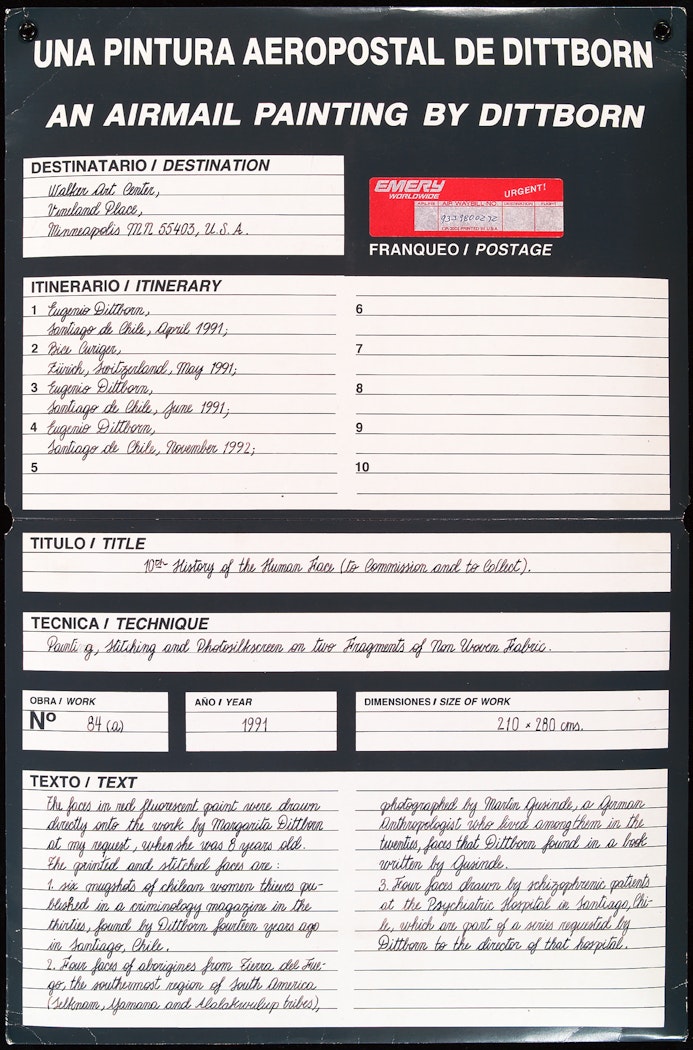 UNA PINTURA AEROPOSTAL DE DITTBORN
AN AIRMAIL PAINTING BY DITTBORN
DESTINATARIO / DESTINATION
Walker Art Center,
Vineland Place,
Minneapolis MN 55403, U.S.A.
EMERY
WORLDWIDE
URGENT!
AIR WAYBILL NO.
DESTINATION
FRANQUEO / POSTAGE
ITINERARIO / ITINERARY
1 Eugenio Dittborn,
Santiago de Chile, April 1991;
2 Bice Curiger,
Zürich, Switzerland, May 1991;
3 Eugenio Dittborn,
Santiago de Chile, June 1991;
4 Eugenio Dittborn,
Santiago de Chile, November 1992;
5
6
7
8
9
10
TITULO / TITLE
10th History of the Human Face (to Commission and to Collect).
TECNICA / TECHNIQUE
Painti g, Stitching and Photosilkscreen on two Fragments of Non Woven Fabric.
OBRA / WORK
Nº 84 (a)
AÑO / YEAR
1991
DIMENSIONES / SIZE OF WORK
210 × 280 cms.
TEXTO / TEXT
The faces in red fluorescent paint were drawn
directly onto the work by Margarita Dittborn
at my request, when she was 8 years old.
The printed and stitched faces are:
1. six mugshots of chilean women thieves pu-
blished in a criminology magazine in the
thirties, found by Dittborn fourteen years ago
in Santiago, Chile.
2. Four faces of aborigines from Tierra del Fue-
go, the southermost region of South America
(Selknam, Yamana and Alalakwulup tribes),
photographed by Martin Gusinde, a German
Anthropologist who lived among them in the
twenties, faces that Dittborn found in a book
written by Gusinde.
3. Four faces drawn by schizophrenic patients
at the Psychiatric Hospital in Santiago, Chi-
le, which are part of a series requested by
Dittborn to the director of that hospital.